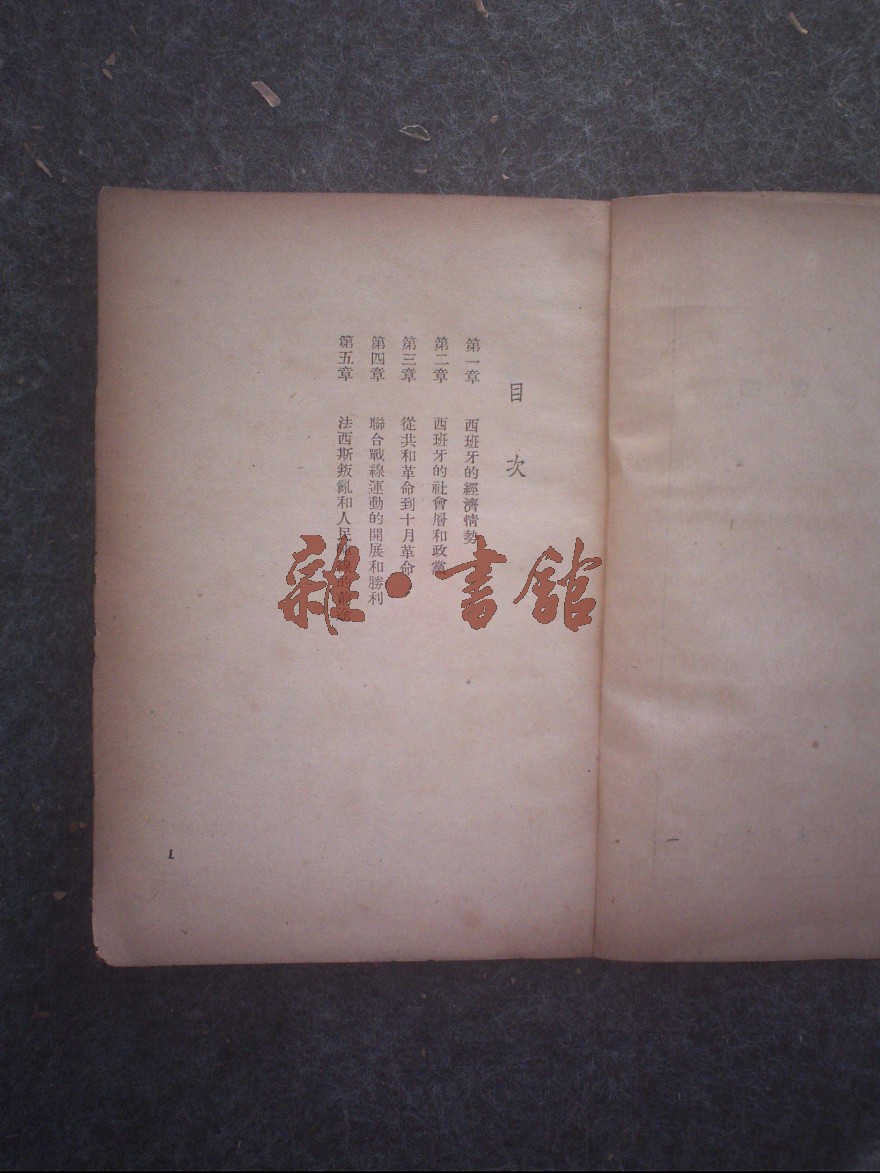 目次
第一章 西班牙的經濟情勢
第二章 西班牙的社會層和政黨
第三章 從共和革命到十月革命
第四章 聯合戰線運動的開展和勝利
第五章 法西斯叛亂和人民 的前途
1
雜·書館